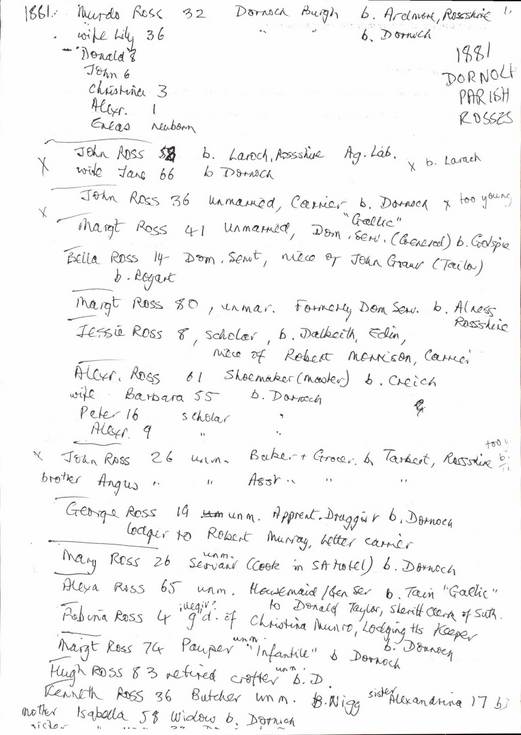 1861. Murdo Ross 32 Dornoch Burgh b. Ardmore, Rosshire
wife Lily 36 " " b. Dornoch
Donald 8
John 6
Christina 3
Alexr. 1
Eneas newborn
1881
DORNOCH
PARISH
ROSSES
x John Ross b. Laroch, Rossshire Ag. Lab. x b. Larach
wife Jane 66 b Dornoch
x John Ross 36 unmarried, Carrier b. Dornoch x too young
Margt Ross 41 unmarried, Dom. Serv. (General) "Gaelic" b. Golspie
Bella Ross 14 Dom. Servt, niece of John Grant (Tailor)
b. Rogart
Margt Ross 80, unmar. Formerly Dom Serv. b. Alness Rossshire
Jessie Ross 8, scholar, b. Dalkeith, Edin,
niece of Robert Morrison, Carrier
Alexr. Ross 61 Shoemaker (master) b. Creich
wife Barbara 55 b. Dornoch
Peter 16 scholar "
Alexr. 9 " "
x John Ross 26 unm. Baker + Grocer b. Tarbert, Rossshire too
brother Angus " " Asst " " "
George Ross 19 unm. Apprent. Druggist b. Dornoch
lodger to Robert Murray, letter carrier
Mary Ross 26 unm. Servant (Cook in SA Hotel) b. Dornoch
Alexa Ross 65 unm. Housemaid/Gen Ser b. Tain "Gaelic"
to Donald Taylor, Sheriff Clerk of Suth.
Robina Ross 4 illegit. g'd. of Christina Munro, Lodging Hs Keeper
b. Dornoch
Margt Ross 74 unm. Pauper "Infantile" b Dornoch
Hugh Ross 83 retired crofter unm. b. D.
Kenneth Ross 36 Butcher unm. B. Nigg sister Alexandrina 17 b
mother Isabella 58 Widow b. Dornoch